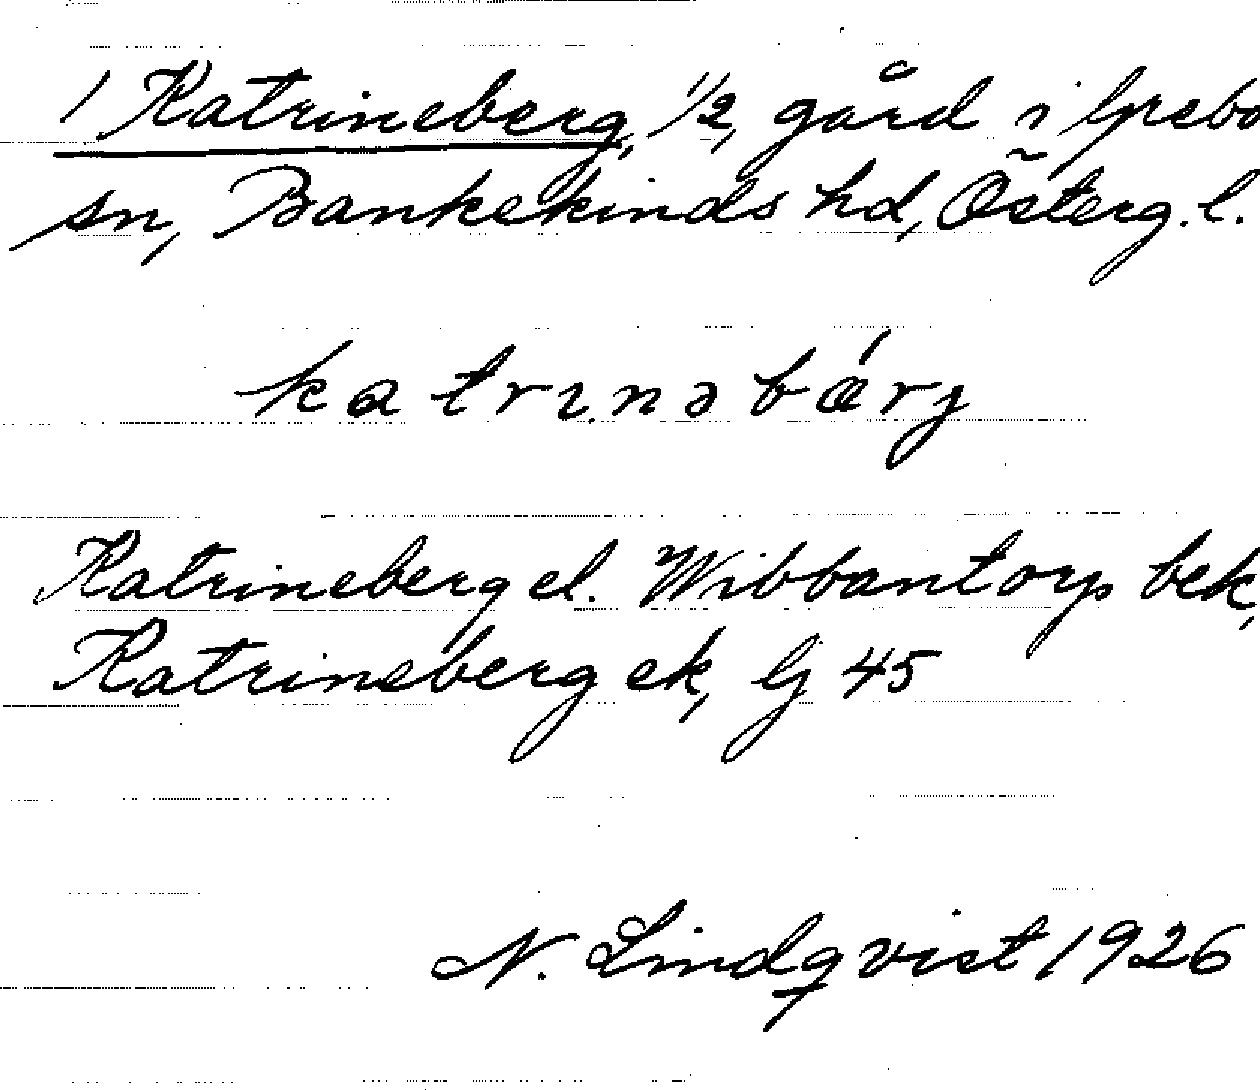 1 Katrineberg, 1/2, gård i Grebo
sn, Bankekinds hd, Österg. l.
katrɩnəbǽrj
Katrineberg el. Wibbantorp bek,
Katrineberg ek, Gj 45
N. Lindqvist 1926